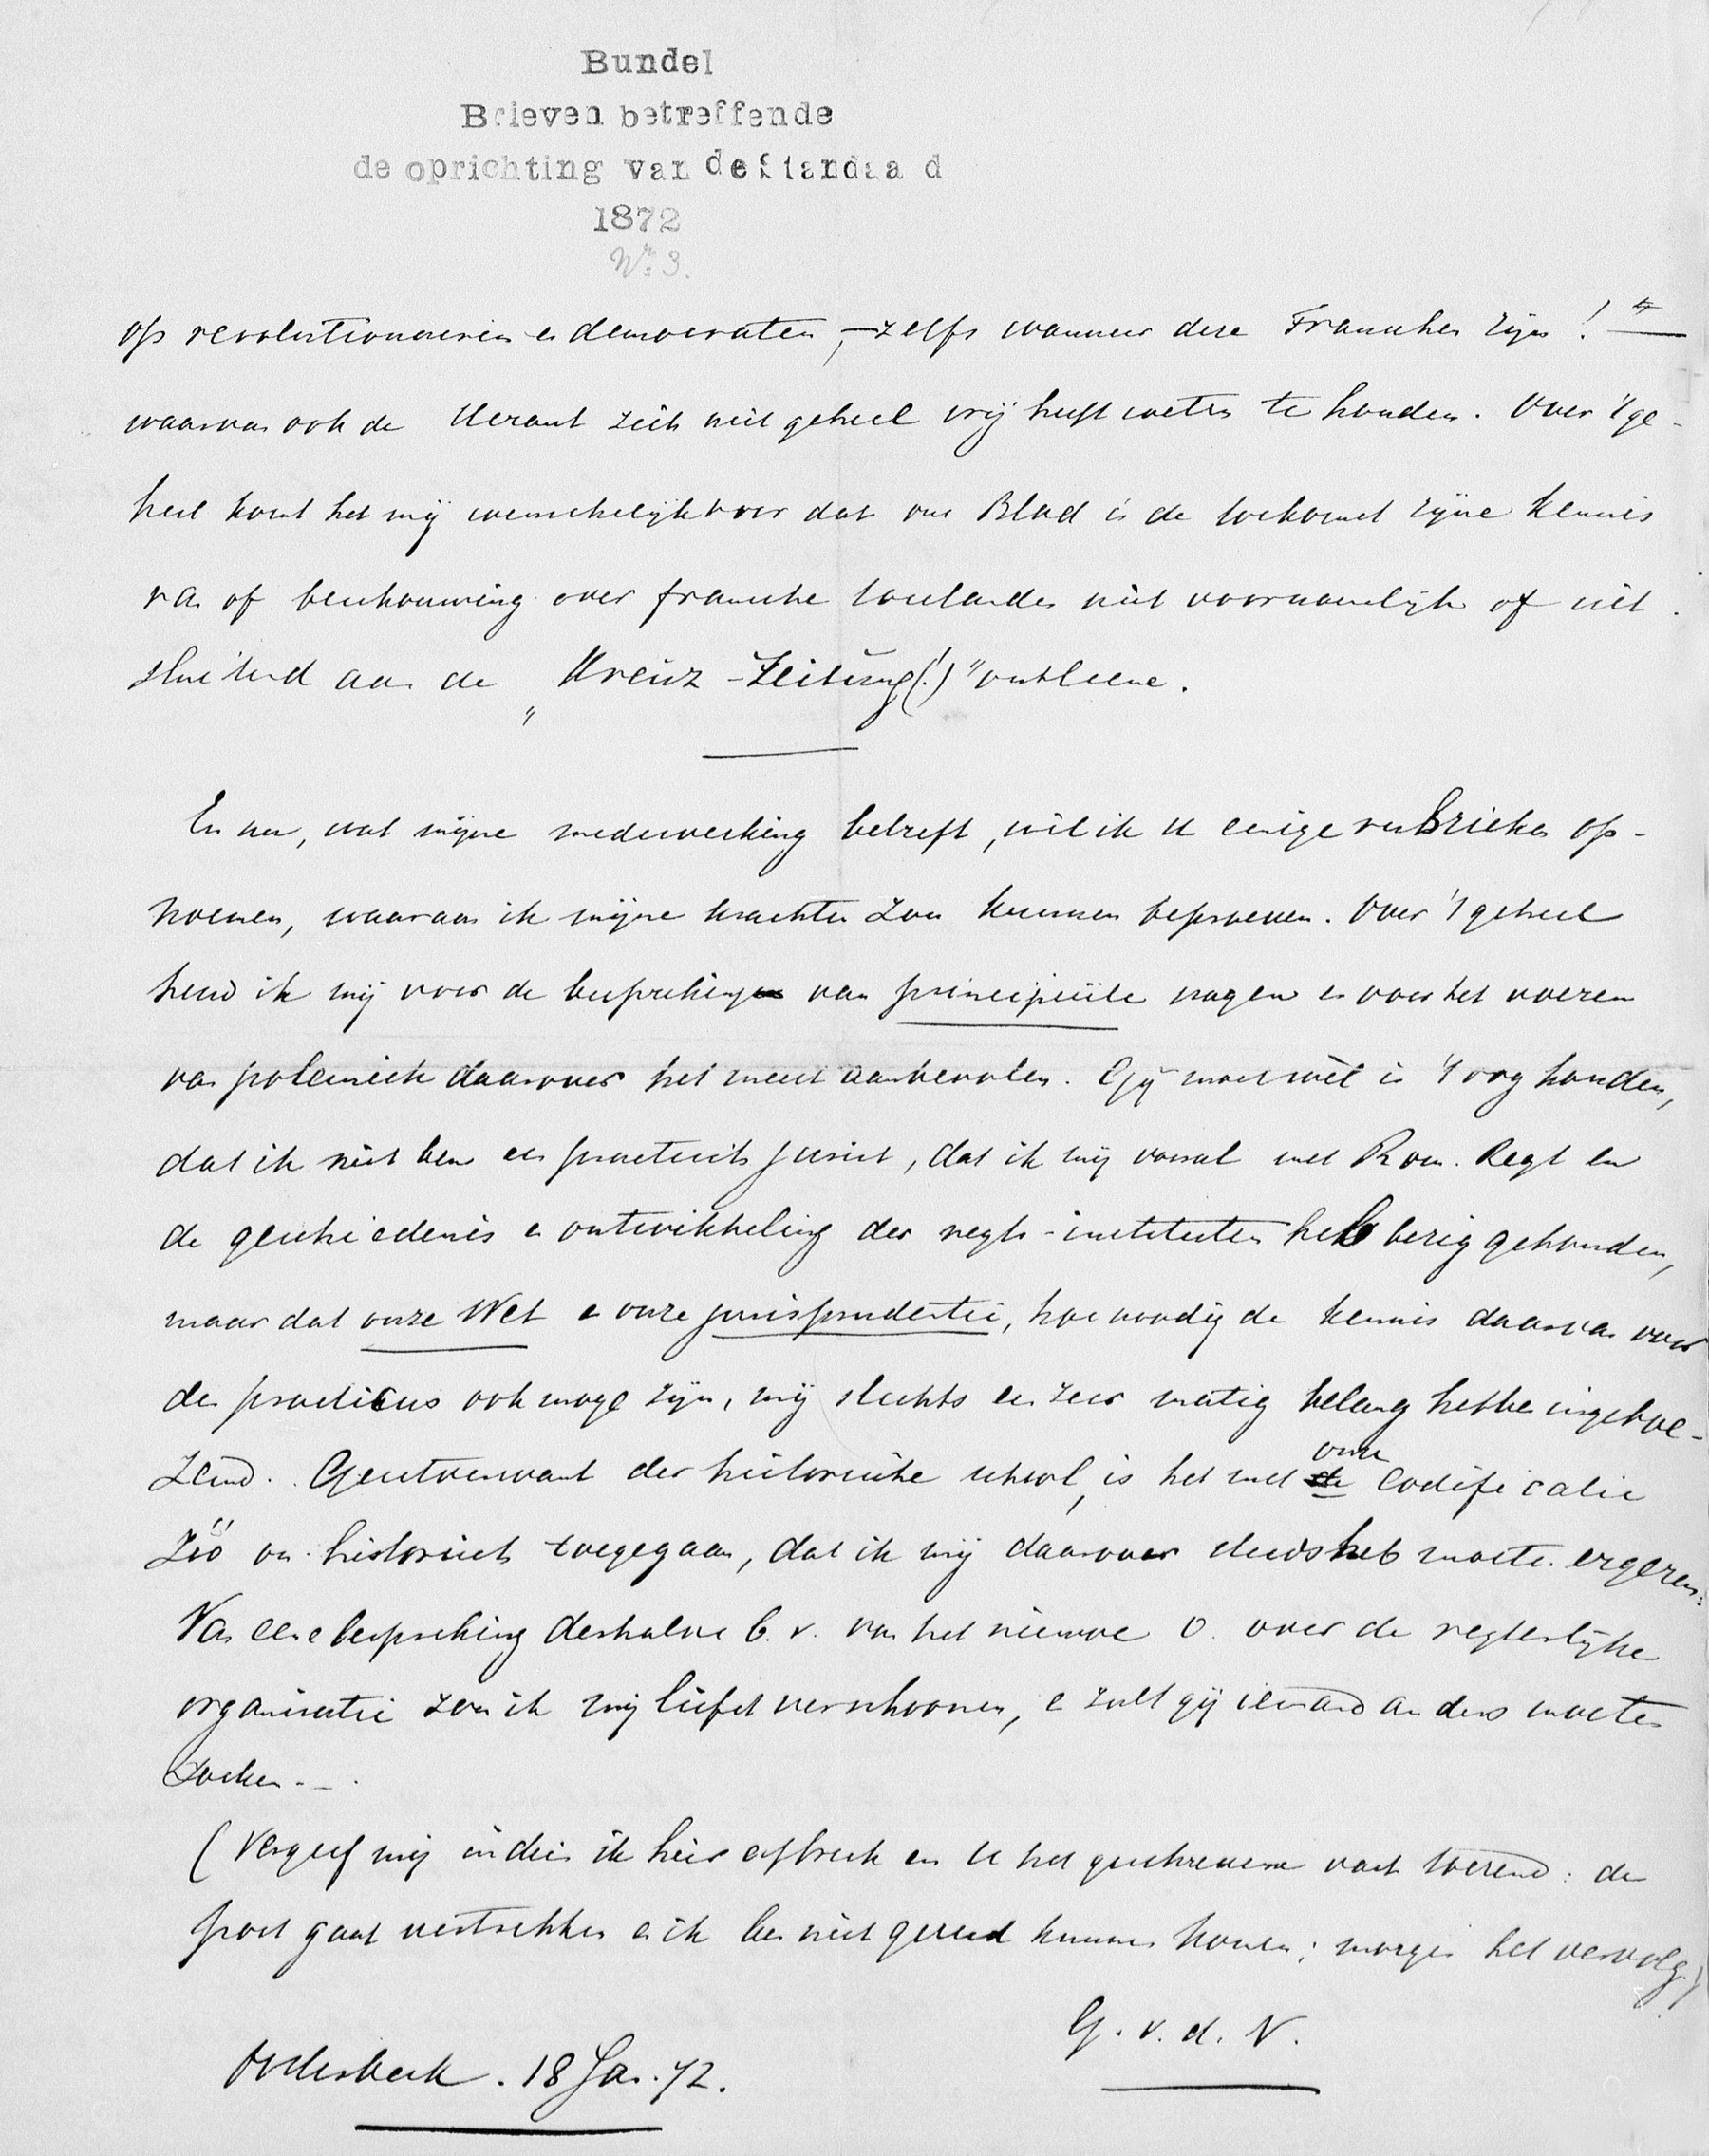 Bundel
Brieven betreffende
de oprichting van de Standaa d
1872
No 3.
op revolutionairen en democraten, – zelfs wanneer deze Franschen zijn! –
waarvan ook de Heraut zich niet geheel vrij heeft weten te houden. Over 't ge-
heel komt het mij wenschelijk voor dat ons Blad in de toekomst zijne kennis
van of beschouwing over fransche toestanden niet voornamelijk of uit-
sluitend aan de „Kreuz-Zeitung(!)" ontleene.
En nu, wat mijne medewerking betreft, wil ik U eenige rubrieken op-
noemen, waaraan ik mijne krachten zou kunnen beproeven. Over 't geheel
houd ik mij voor de bespreking van principiële vragen en voor het voeren
van polemiek daarover het meest aanbevolen. Gij moet wèl in 't oog houden,
dat ik niet ben een practisch jurist, dat ik mij vooral met Rom. Regt en
de geschiedenis en ontwikkeling der regts-instituten heb bezig gehouden,
maar dat onze Wet en onze jurisprudentie, hoe noodig de kennis daarvan voor
den practicus ook moge zijn, mij slechts een zeer matig belang hebben ingeboe-
zemd. Geestverwant der historische school, is het met onze codificatie
zóó on-historisch toegegaan, dat ik mij daarover steeds heb moeten ergeren.
Van eene bespreking derhalve b.v. van het nieuwe O. over de regterlijke
organisatie zou ik mij liefst verschoonen, en zult gij iemand anders moeten
zoeken. –
(Vergeef mij indien ik hier afbreek en U het geschrevene vast toezend: de
post gaat vertrekken en ik ben niet gereed kunnen komen; morgen het vervolg.)
G. v. d. N.
Oosterbeek. 18 Jan. 72.